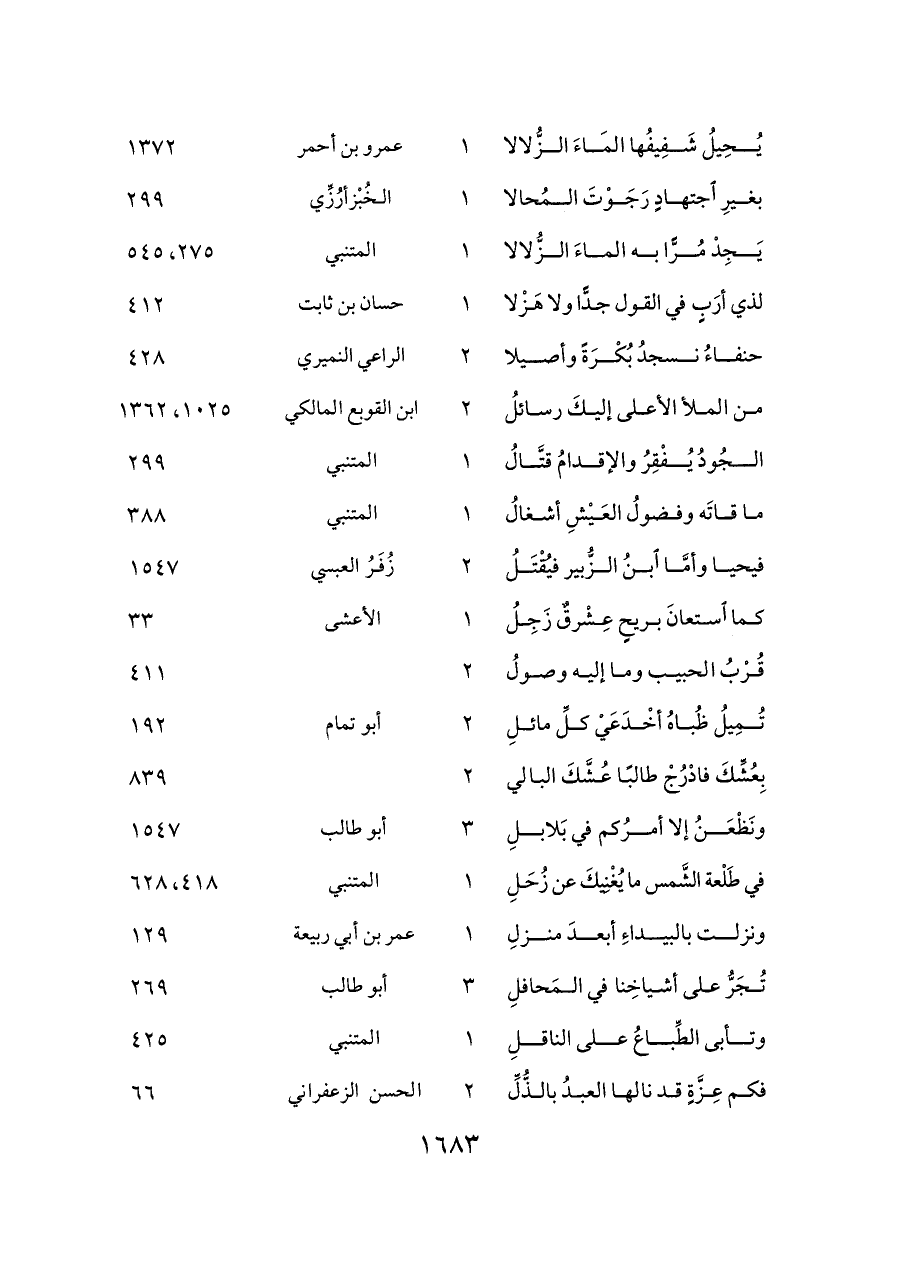 يُـحِيلُ شَـفِيفُها المَـاءَ الـزُّلالا ١ عمرو بن أحمر ١٣٧٢
بغـيرِ ٱجتهـادٍ رَجَـوْتَ الـمُحالا ١ الـخُبْز أرُزِّي ٢٩٩
يَـجِدْ مُـرًّا بـه المـاءَ الـزُّلالا ١ المتنبي ٢٧٥، ٥٤٥
لذي أرَبٍ في القول جدًّا ولا هَزْلا ١ حسان بن ثابت ٤١٢
حنفـاءُ نـسجدُ بُكْـرَةً وأصـيلا ٢ الراعي النميري ٤٢٨
مـن المـلأ الأعـلى إليـكَ رسـائلُ ٢ ابن القوبع المالكي ١٠٢٥، ١٣٦٢
الـجُودُ يُـفْقِرُ والإقـدامُ قتَّـالُ ١ المتنبي ٢٩٩
مـا قـاتَه وفـضولُ العَـيْشِ أشـغالُ ١ المتنبي ٣٨٨
فيحيـا وأمَّـا ٱبـنُ الـزُّبير فيُقْتَـلُ ٢ زُفَرُ العبسي ١٥٤٧
كـما ٱسـتعانَ بـريحٍ عِـشْرِقٌ زَجِـلُ ١ الأعشى ٣٣
قُـرْبُ الحبيـب ومـا إليـه وصـولُ ٢ ٤١١
تُـمِيلُ ظُبـاهُ أخْـدَعَيْ كـلِّ مائـلِ ٢ أبو تمام ١٩٢
بِعُشِّكَ فادْرُجْ طالبًا عُشَّكَ البالي ٢ ٨٣٩
ونَظْعَـنُ إلا أمـرُكم في بَلابـلِ ٣ أبو طالب ١٥٤٧
في طَلْعة الشَّمس ما يُغْنِيكَ عن زُحَلِ ١ المتنبي ٤١٨، ٦٢٨
ونزلـت بالبيـداءِ أبعـدَ منـزلِ ١ عمر بن أبي ربيعة ١٢٩
تُـجَرُّ عـلى أشـياخِنا في الـمَحافلِ ٣ أبو طالب ٢٦٩
وتـأبى الطِّبـاعُ عـلى الناقـلِ ١ المتنبي ٤٢٥
فكـم عِـزَّةٍ قـد نالهـا العبـدُ بالـذُّلِّ ٢ الحسن الزعفراني ٦٦
١٦٨٣